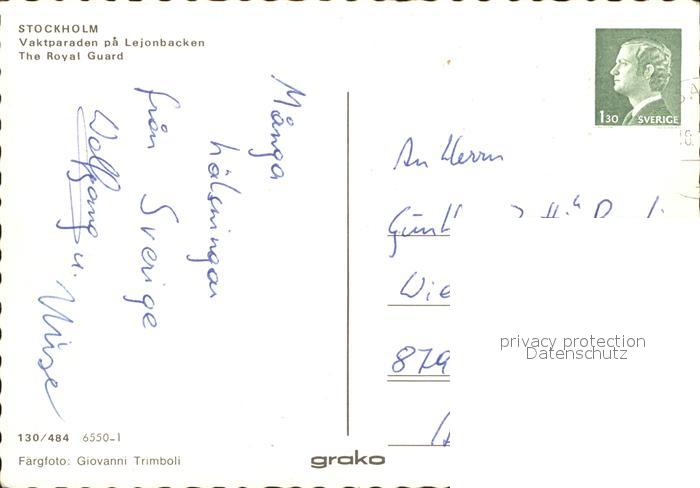 STOCKHOLM
Vaktparaden på Lejonbacken
The Royal Guard
Många
hälsningar
från Sverige
Wolfgang u.
130/484 6550-1
Färgfoto: Giovanni Trimboli
grako
1 30 SVERIGE
An Herrn
Günt
Wie
879
privacy protection
Datenschutz